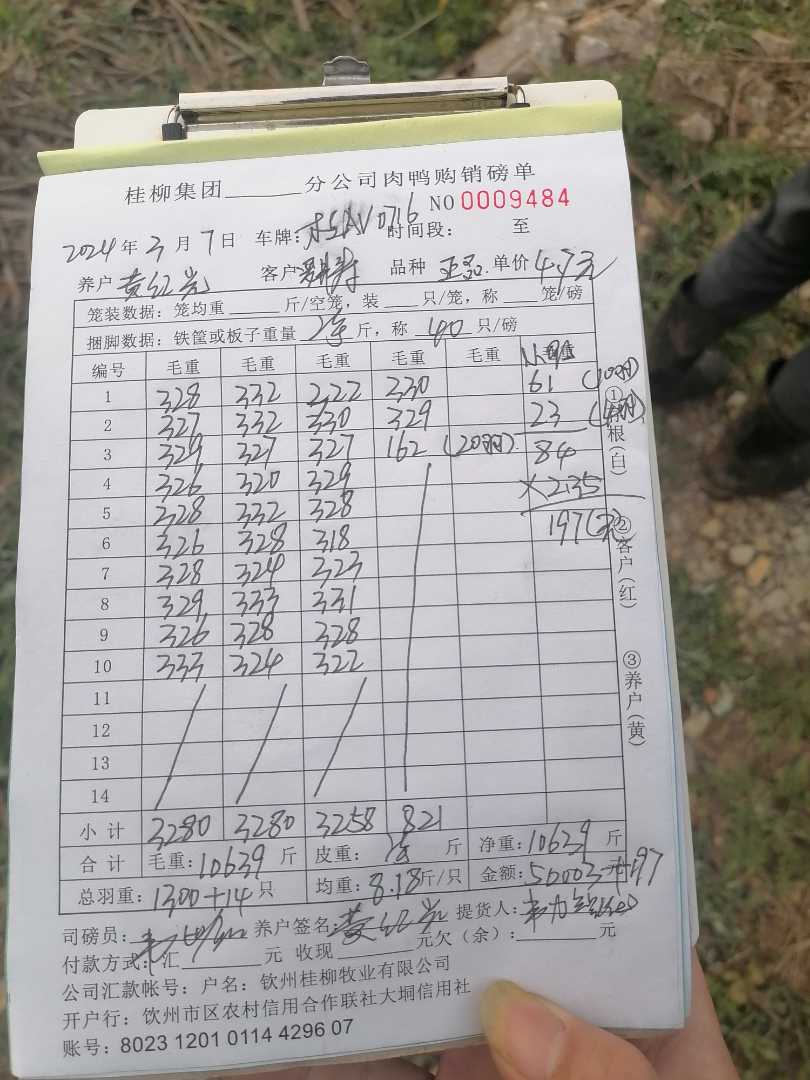 桂柳集团______分公司肉鸭购销磅单
NO 0009484
2024年3月7日 车牌: 桂AV0716 时间段: 至
养户 黄红光 客户 品种 单价 4.7元
笼装数据: 笼均重 ______ 斤/空笼, 装 ____ 只/笼, 称 ____ 笼/磅
捆脚数据: 铁筐或板子重量 斤, 称 40 只/磅
编号 毛重 毛重 毛重 毛重 毛重
1 328 332 322 330 61 (10羽)
2 327 332 330 329 23 (4羽)
3 329 327 327 162 (20羽) 84
4 326 320 329 ×2.35
5 328 332 328
6 326 328 318 197(元)
7 328 324 323
8 329 333 331
9 326 328 328
10 333 324 322
11
12
13
14
小计 3280 3280 3258 821
合计 毛重: 10639 斤 皮重: 斤 净重: 10639 斤
总羽重: 1300+14 只 均重: 8.18 斤/只 金额: 50003+197
司磅员: 养户签名: 黄红光 提货人:
付款方式: 汇 ______ 元 收现 ______ 元欠(余): ______ 元
公司汇款帐号: 户名: 钦州桂柳牧业有限公司
开户行: 钦州市区农村信用合作联社大垌信用社
账号: 8023 1201 0114 4296 07
①存根(白)
②客户(红)
③养户(黄)